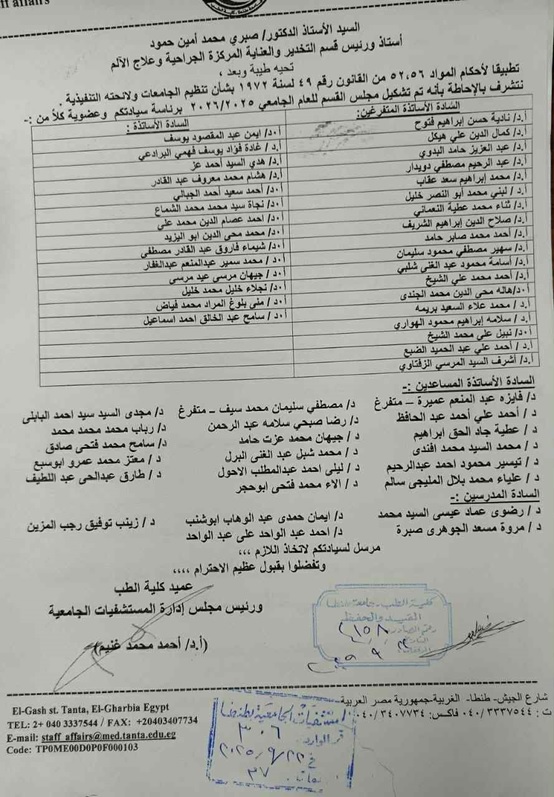 ff affairs
السيد الأستاذ الدكتور/ صبري محمد أمين حمود
أستاذ ورئيس قسم التخدير والعناية المركزة الجراحية وعلاج الألم
تحيه طيبة وبعد ,
تطبيقا لأحكام المواد ٥٢،٥٦ من القانون رقم ٤٩ لسنة ١٩٧٢ بشأن تنظيم الجامعات ولائحته التنفيذية .
نتشرف بالإحاطة بأنه تم تشكيل مجلس القسم للعام الجامعي ٢٠٢٦/٢٠٢٥ برئاسة سيادتكم وعضوية كلاً من :-
السادة الأساتذة المتفرغين:
أ.د/ نادية حسن إبراهيم فتوح
أ.د/ كمال الدين علي هيكل
أ.د/ عبد العزيز حامد البدوي
أ.د/ عبد الرحيم مصطفي دويدار
أ.د/ محمد إبراهيم سعد عقاب
أ.د / لبني محمد أبو النصر خليل
أ.د/ ثناء محمد عطية النعماني
أ.د/ صلاح الدين إبراهيم الشريف
أ.د/ أحمد محمد صابر حامد
أ.د/ سهير مصطفي محمود سليمان
أ.د/ أسامة محمود عبد الغنى شلبي
أ.د/ أحمد محمد علي الشيخ
أ.د/هاله محى الدين محمد الجندى
أ.د/ محمد علاء السعيد بريمه
أ.د / سلامه إبراهيم محمود الهواري
أ.د/ نبيل علي محمد الشيخ
أ.د / أحمد علي عبد الحميد الضبع
أ.د/ أشرف السيد المرسي الزفتاوي
السادة الأساتذة :
أ.د/ ايمن عبد المقصود يوسف
أ.د/ غادة فؤاد يوسف فهمي البرادعي
أ.د/ هدي السيد أحمد عز
أ.د/ هشام محمد معروف عبد القادر
أ.د/ أحمد سعيد أحمد الجبالي
أ.د/ نجاة سيد محمد محمد الشماع
أ.د/ احمد عصام الدين محمد علي
أ.د/ محمد محى الدين ابو اليزيد
أ.د/ شيماء فاروق عبد القادر مصطفى
أ.د/ محمد سمير عبدالمنعم عبدالغفار
أ.د/ جيهان مرسى عيد مرسى
أ.د/ نجلاء خليل محمد خليل
أ.د/ منى بلوغ المراد محمد فياض
أ.د/ سامح عبد الخالق احمد اسماعيل
السادة الأساتذة المساعدين :-
د/ فايزه عبد المنعم عميرة – متفرغ د/ مصطفي سليمان محمد سيف – متفرغ د/ مجدى السيد سيد احمد البابلى
د/ أحمد علي أحمد عبد الحافظ د/ رضا صبحي سلامه عبد الرحمن د/ رباب محمد محمد محمد
د/ عطية جاد الحق ابراهيم د/ جيهان محمد عزت حامد د/ سامح محمد فتحى صادق
د/ محمد السيد محمد افندى د/ محمد شبل عبد الغنى البرل د/ معتز محمد عمرو ابوسبع
د/ تيسير محمود احمد عبدالرحيم د/ ليلى احمد عبدالمطلب الاحول د/ طارق عبدالحى عبد اللطيف
د/ علياء محمد بلال المليجى سالم د/ الاء محمد فتحى ابوحجر
السادة المدرسين :-
د / رضوى عماد عيسى السيد محمد د/ ايمان حمدى عبد الوهاب ابوشنب د / زينب توفيق رجب المزين
د / مروة مسعد الجوهرى صبرة د/ احمد عبد الواحد على عبد الواحد
مرسل لسيادتكم لاتخاذ اللازم ،،،
وتفضلوا بقبول عظيم الاحترام ،،،،
عميد كلية الطب
ورئيس مجلس إدارة المستشفيات الجامعية
(أ.د/ أحمد محمد غنيم)
كلية الطب - جامعة طنطا
القيد والحفظ
El-Gash st. Tanta, El-Gharbia Egypt
TEL: 2+ 040 3337544 / FAX: +20403407734
E-mail: staff_affairs@med.tanta.edu.eg
Code: TP0ME00D0P0F000103
شارع الجيش- طنطا- الغربية-جمهورية مصر العربية
ت : ٠٤٠/٣٣٣٧٥٤٤ فاكس: ٠٤٠/٣٤٠٧٧٣٤
مستشفيات الجامعية بطنطا
٣٠٦
٢٠٢٥/٩/٢٢
٣٧